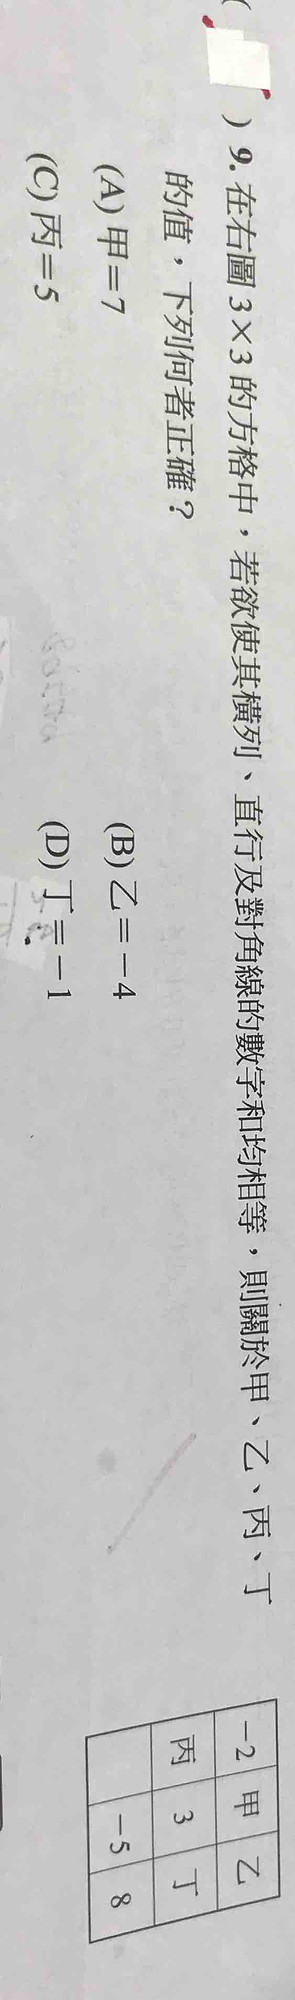 ( ) 9. 在右圖 3×3 的方格中，若欲使其橫列、直行及對角線的數字和均相等，則關於甲、乙、丙、丁
的值，下列何者正確？
(A) 甲=7 (B) 乙=-4
(C) 丙=5 (D) 丁=-1
-2 甲 乙
丙 3 丁
-5 8